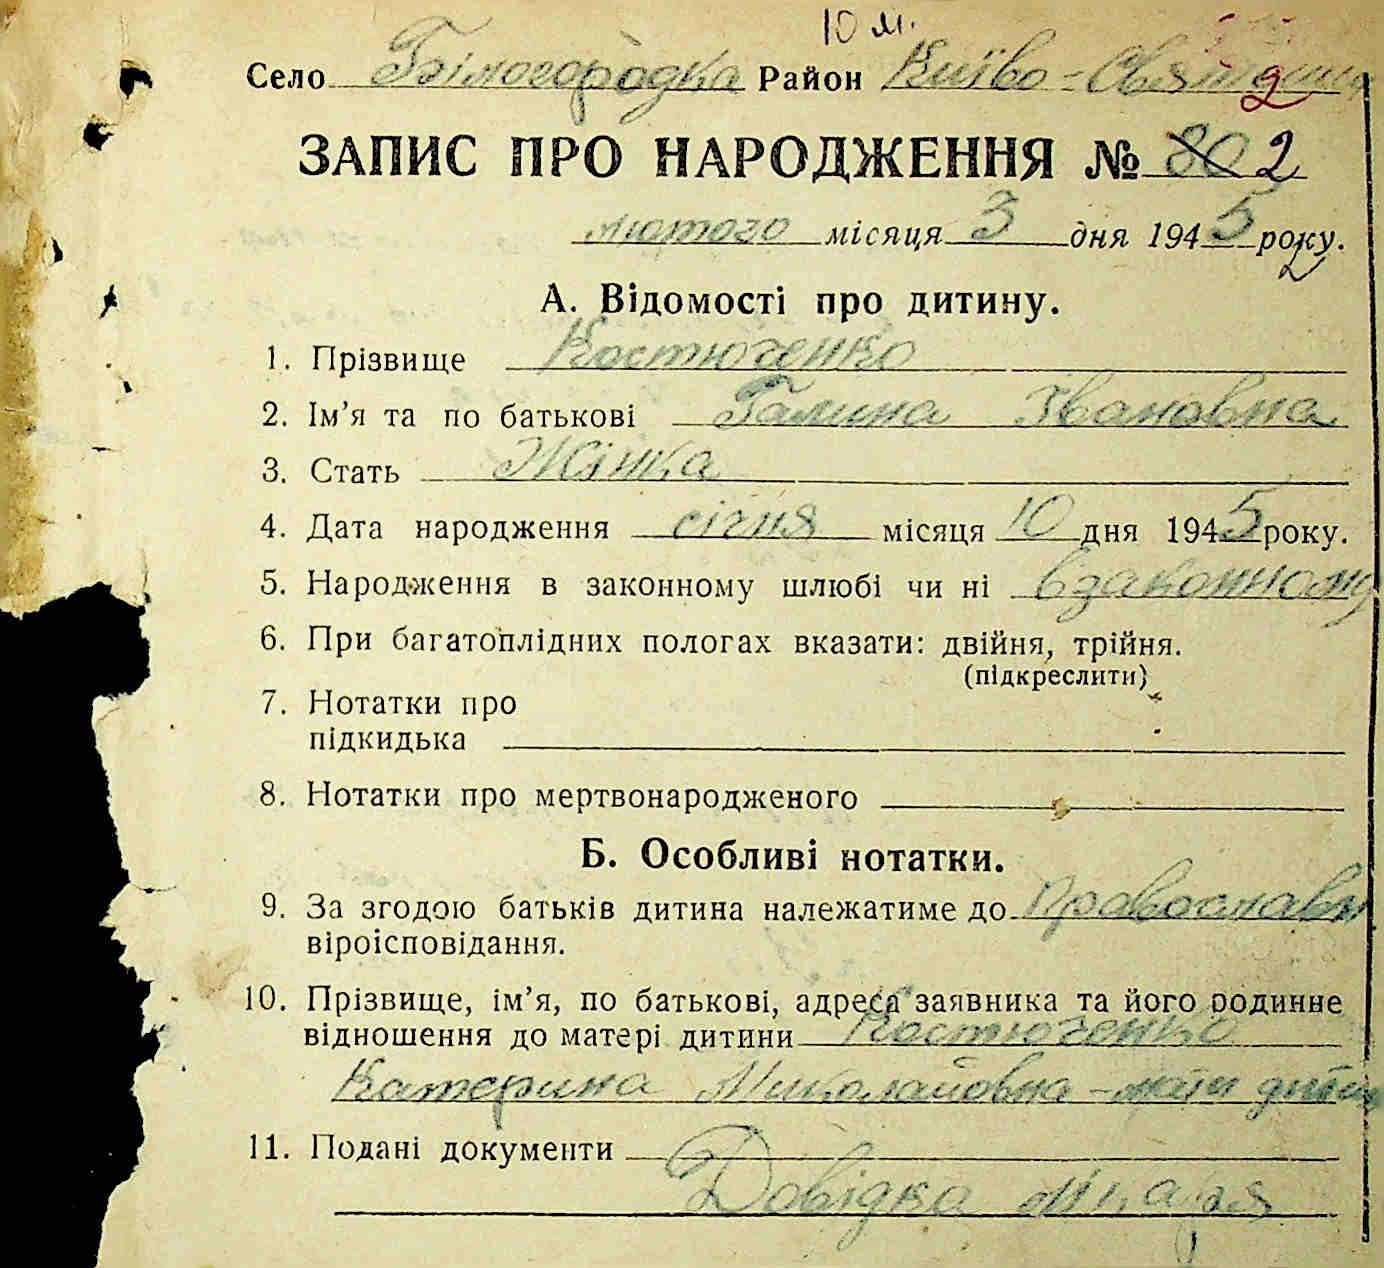 10 м.
Село Білогородка Район Київо-Святошин
2
ЗАПИС ПРО НАРОДЖЕННЯ № 80 2
лютого місяця 3 дня 1945 року.
2
А. Відомості про дитину.
1. Прізвище Костюченко
2. Ім'я та по батькові Галина Івановна
3. Стать Жінка
4. Дата народження січня місяця 10 дня 1945 року.
5. Народження в законному шлюбі чи ні в законному
6. При багатоплідних пологах вказати: двійня, трійня.
(підкреслити)
7. Нотатки про
підкидька
8. Нотатки про мертвонародженого
Б. Особливі нотатки.
9. За згодою батьків дитина належатиме до Православн
віроісповідання.
10. Прізвище, ім'я, по батькові, адреса заявника та його родинне
відношення до матері дитини Костюченко
Катерина Миколайовна - мати дитини
11. Подані документи
Довідка